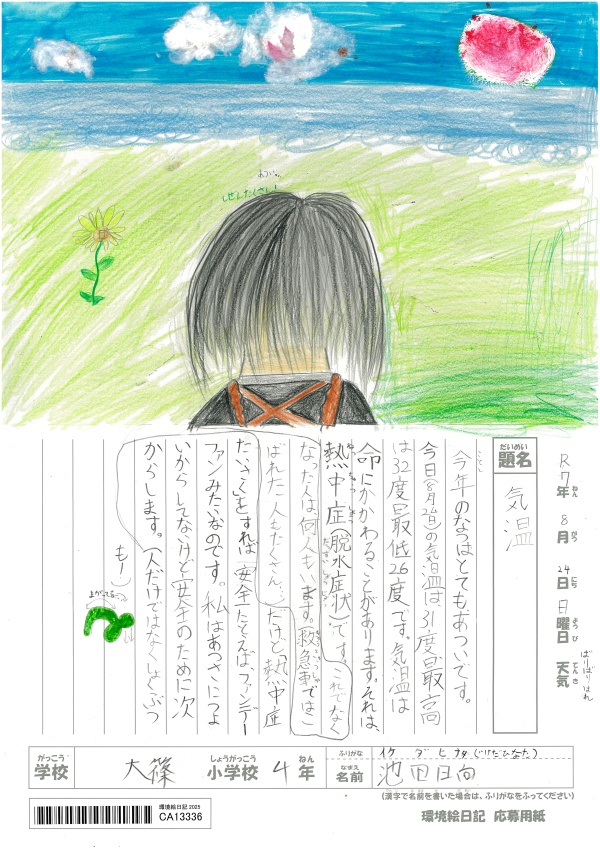 あつい…
しぜんたくさん!
だいめい
題名
気温
R7年 8月 24日 日曜日 天気
ねん がつ にち ようび てんき
ばりばりはれ
今年のなつはとてもあついです。
今日(8月24日)の気温は31度最高
は32度最低26度です。気温は
命にかかわることがあります。それは、
熱中症(脱水症状)です。これでなく
なった人は何人もいます。(救急車ではこ
ばれた人もたくさん…)だけど「熱中症
たいさく」をすれば安全!たとえば、ファンデー
ファンみたいなのです。私はあつさにつよ
いからしてないけど安全のために次
からします。(人だけではなくしょくぶつ
もー)
まがってる…
がっこう
学校
大篠
しょうがっこう
小学校
4
ねん
年
ふりがな
イケダヒナタ(いけだひなた)
なまえ
名前
池田日向
(漢字で名前を書いた場合は、ふりがなをふってください)
環境絵日記 2025
CA13336
環境絵日記 応募用紙